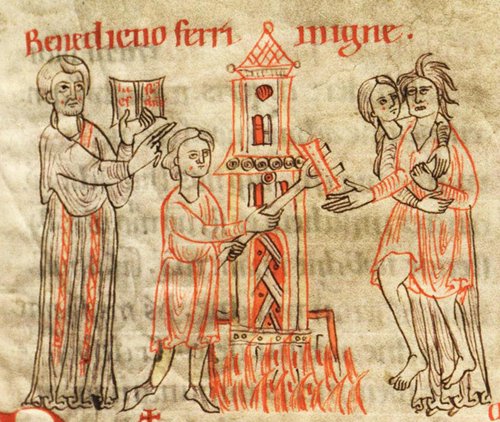 Benedictio ferri in igne.